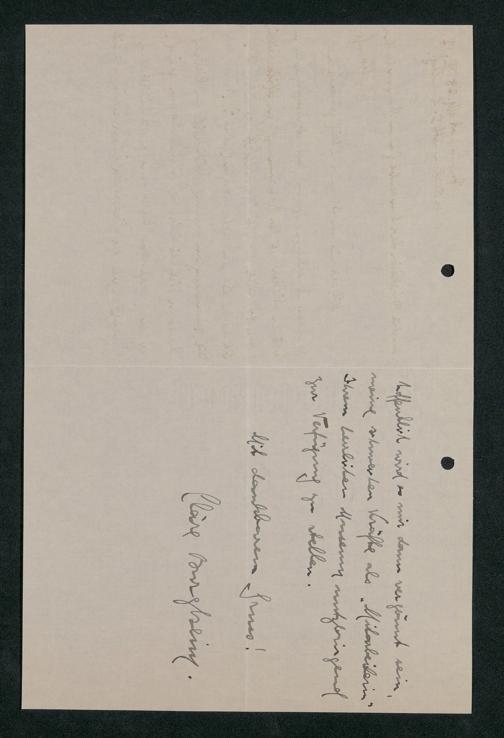 Hoffentlich wird es mir dann vergönnt sein,
meine schwachen Kräfte als „Mitarbeiterin“
Ihrem herrlichen Museum nutzbringend
zur Verfügung zu stellen.
Mit dankbarem Gruss!
Cläre Burgheim.